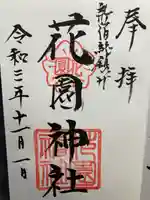 奉拝
新宿総鎮守
花園神社
令和三年十一月一日